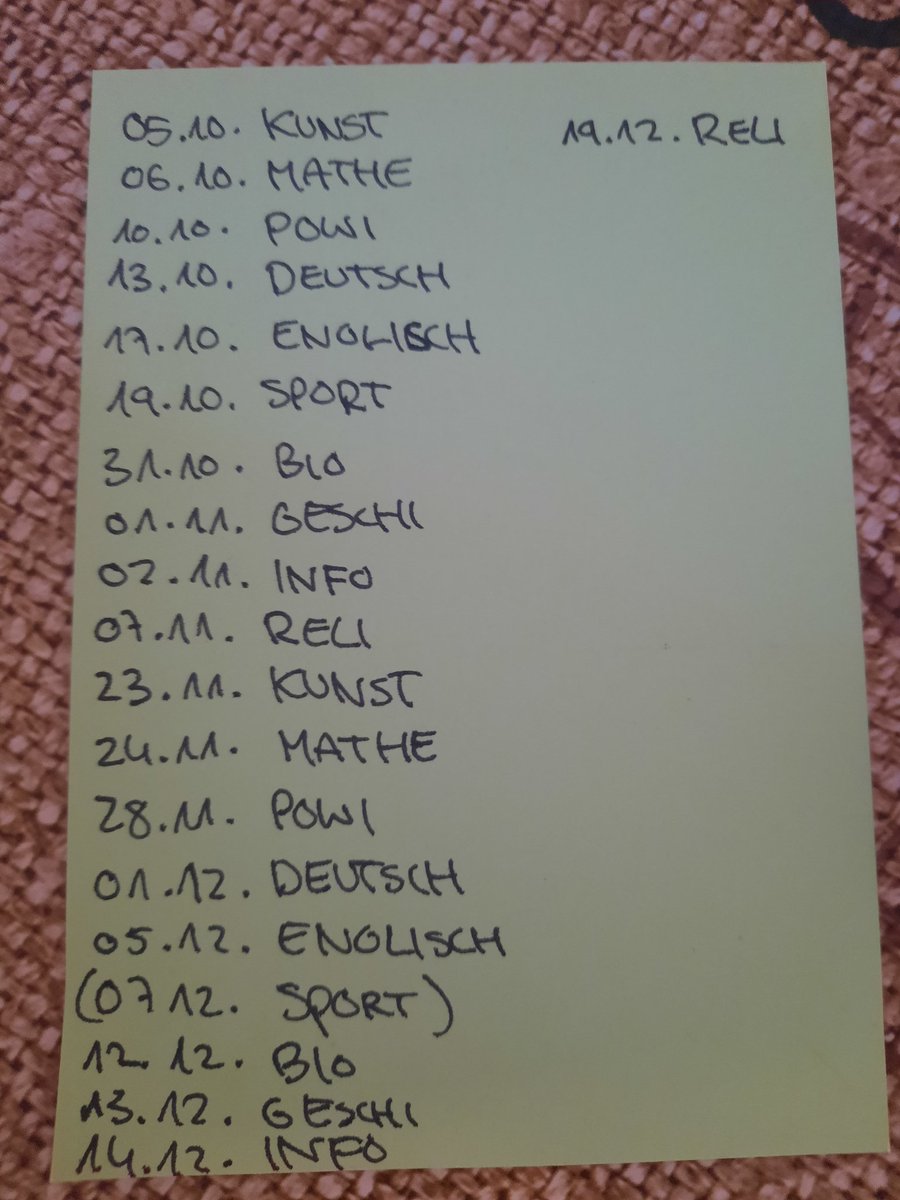 05.10. KUNST
06.10. MATHE
10.10. POWI
13.10. DEUTSCH
17.10. ENGLISCH
19.10. SPORT
31.10. BIO
01.11. GESCHI
02.11. INFO
07.11. RELI
23.11. KUNST
24.11. MATHE
28.11. POWI
01.12. DEUTSCH
05.12. ENGLISCH
(07 12. SPORT)
12. 12. BIO
13.12. GESCHI
14.12. INFO
19.12. RELI